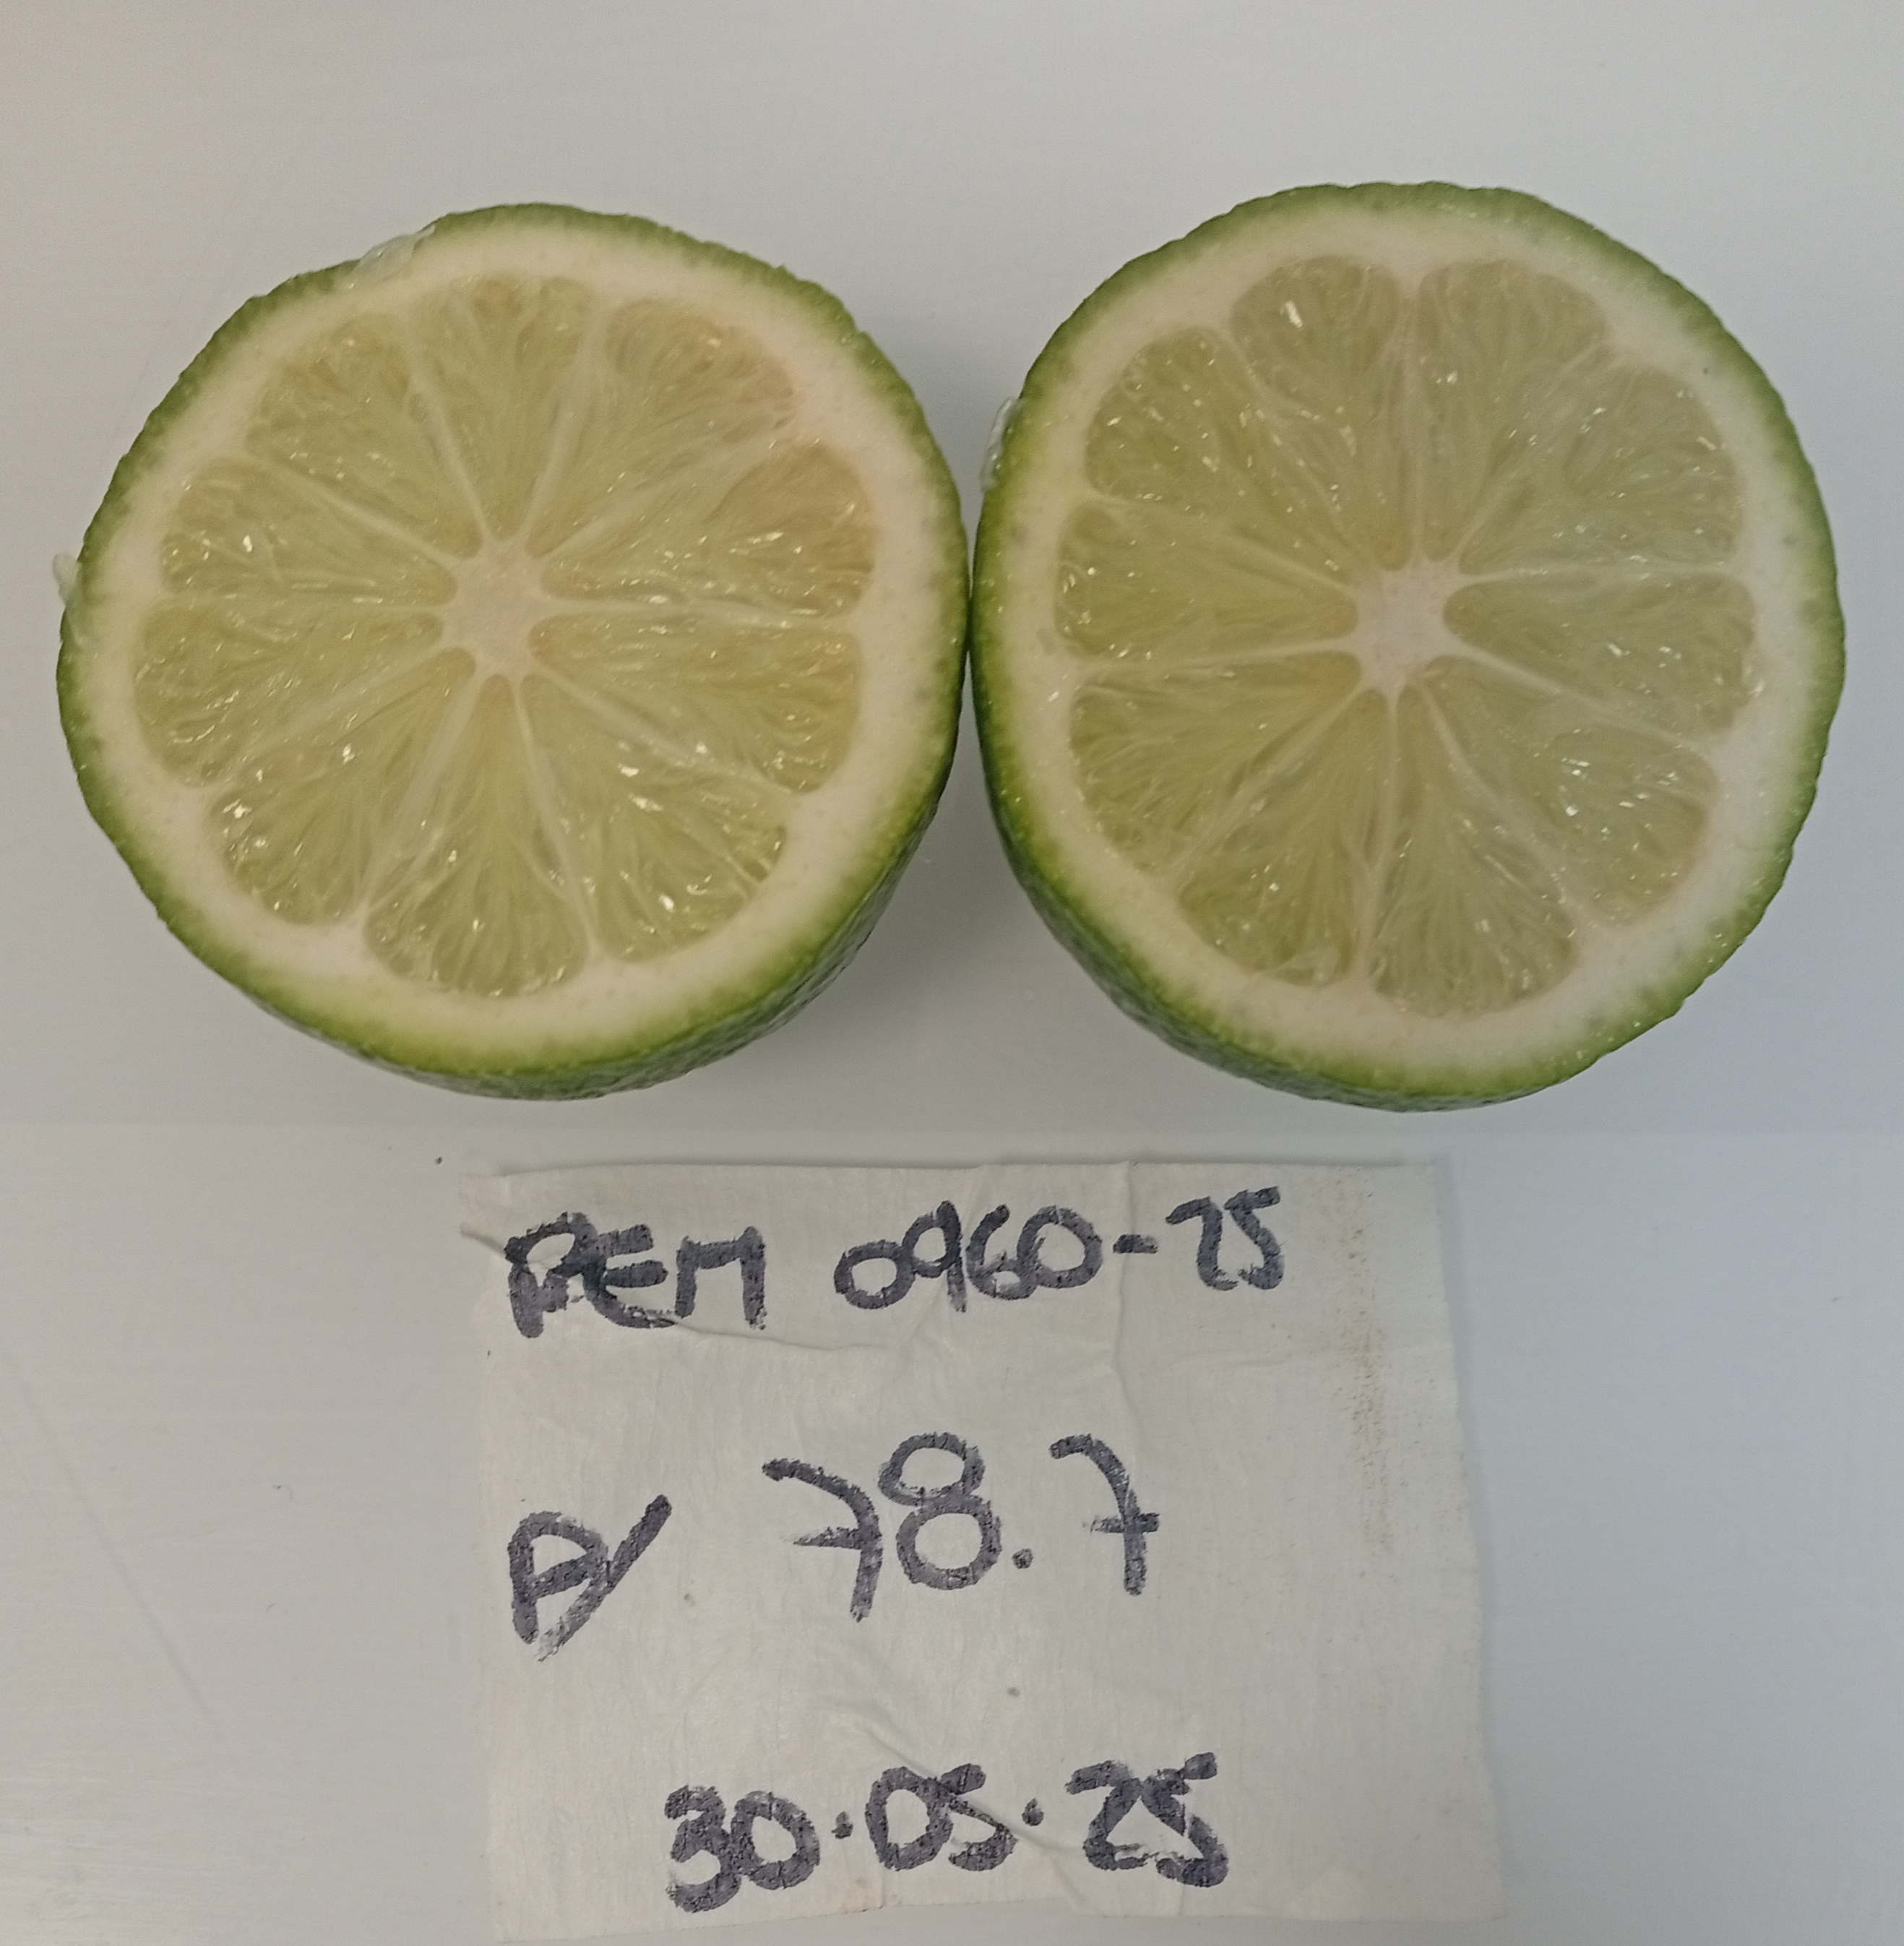 REM 0960-25
P/ 78.7
30.05.25